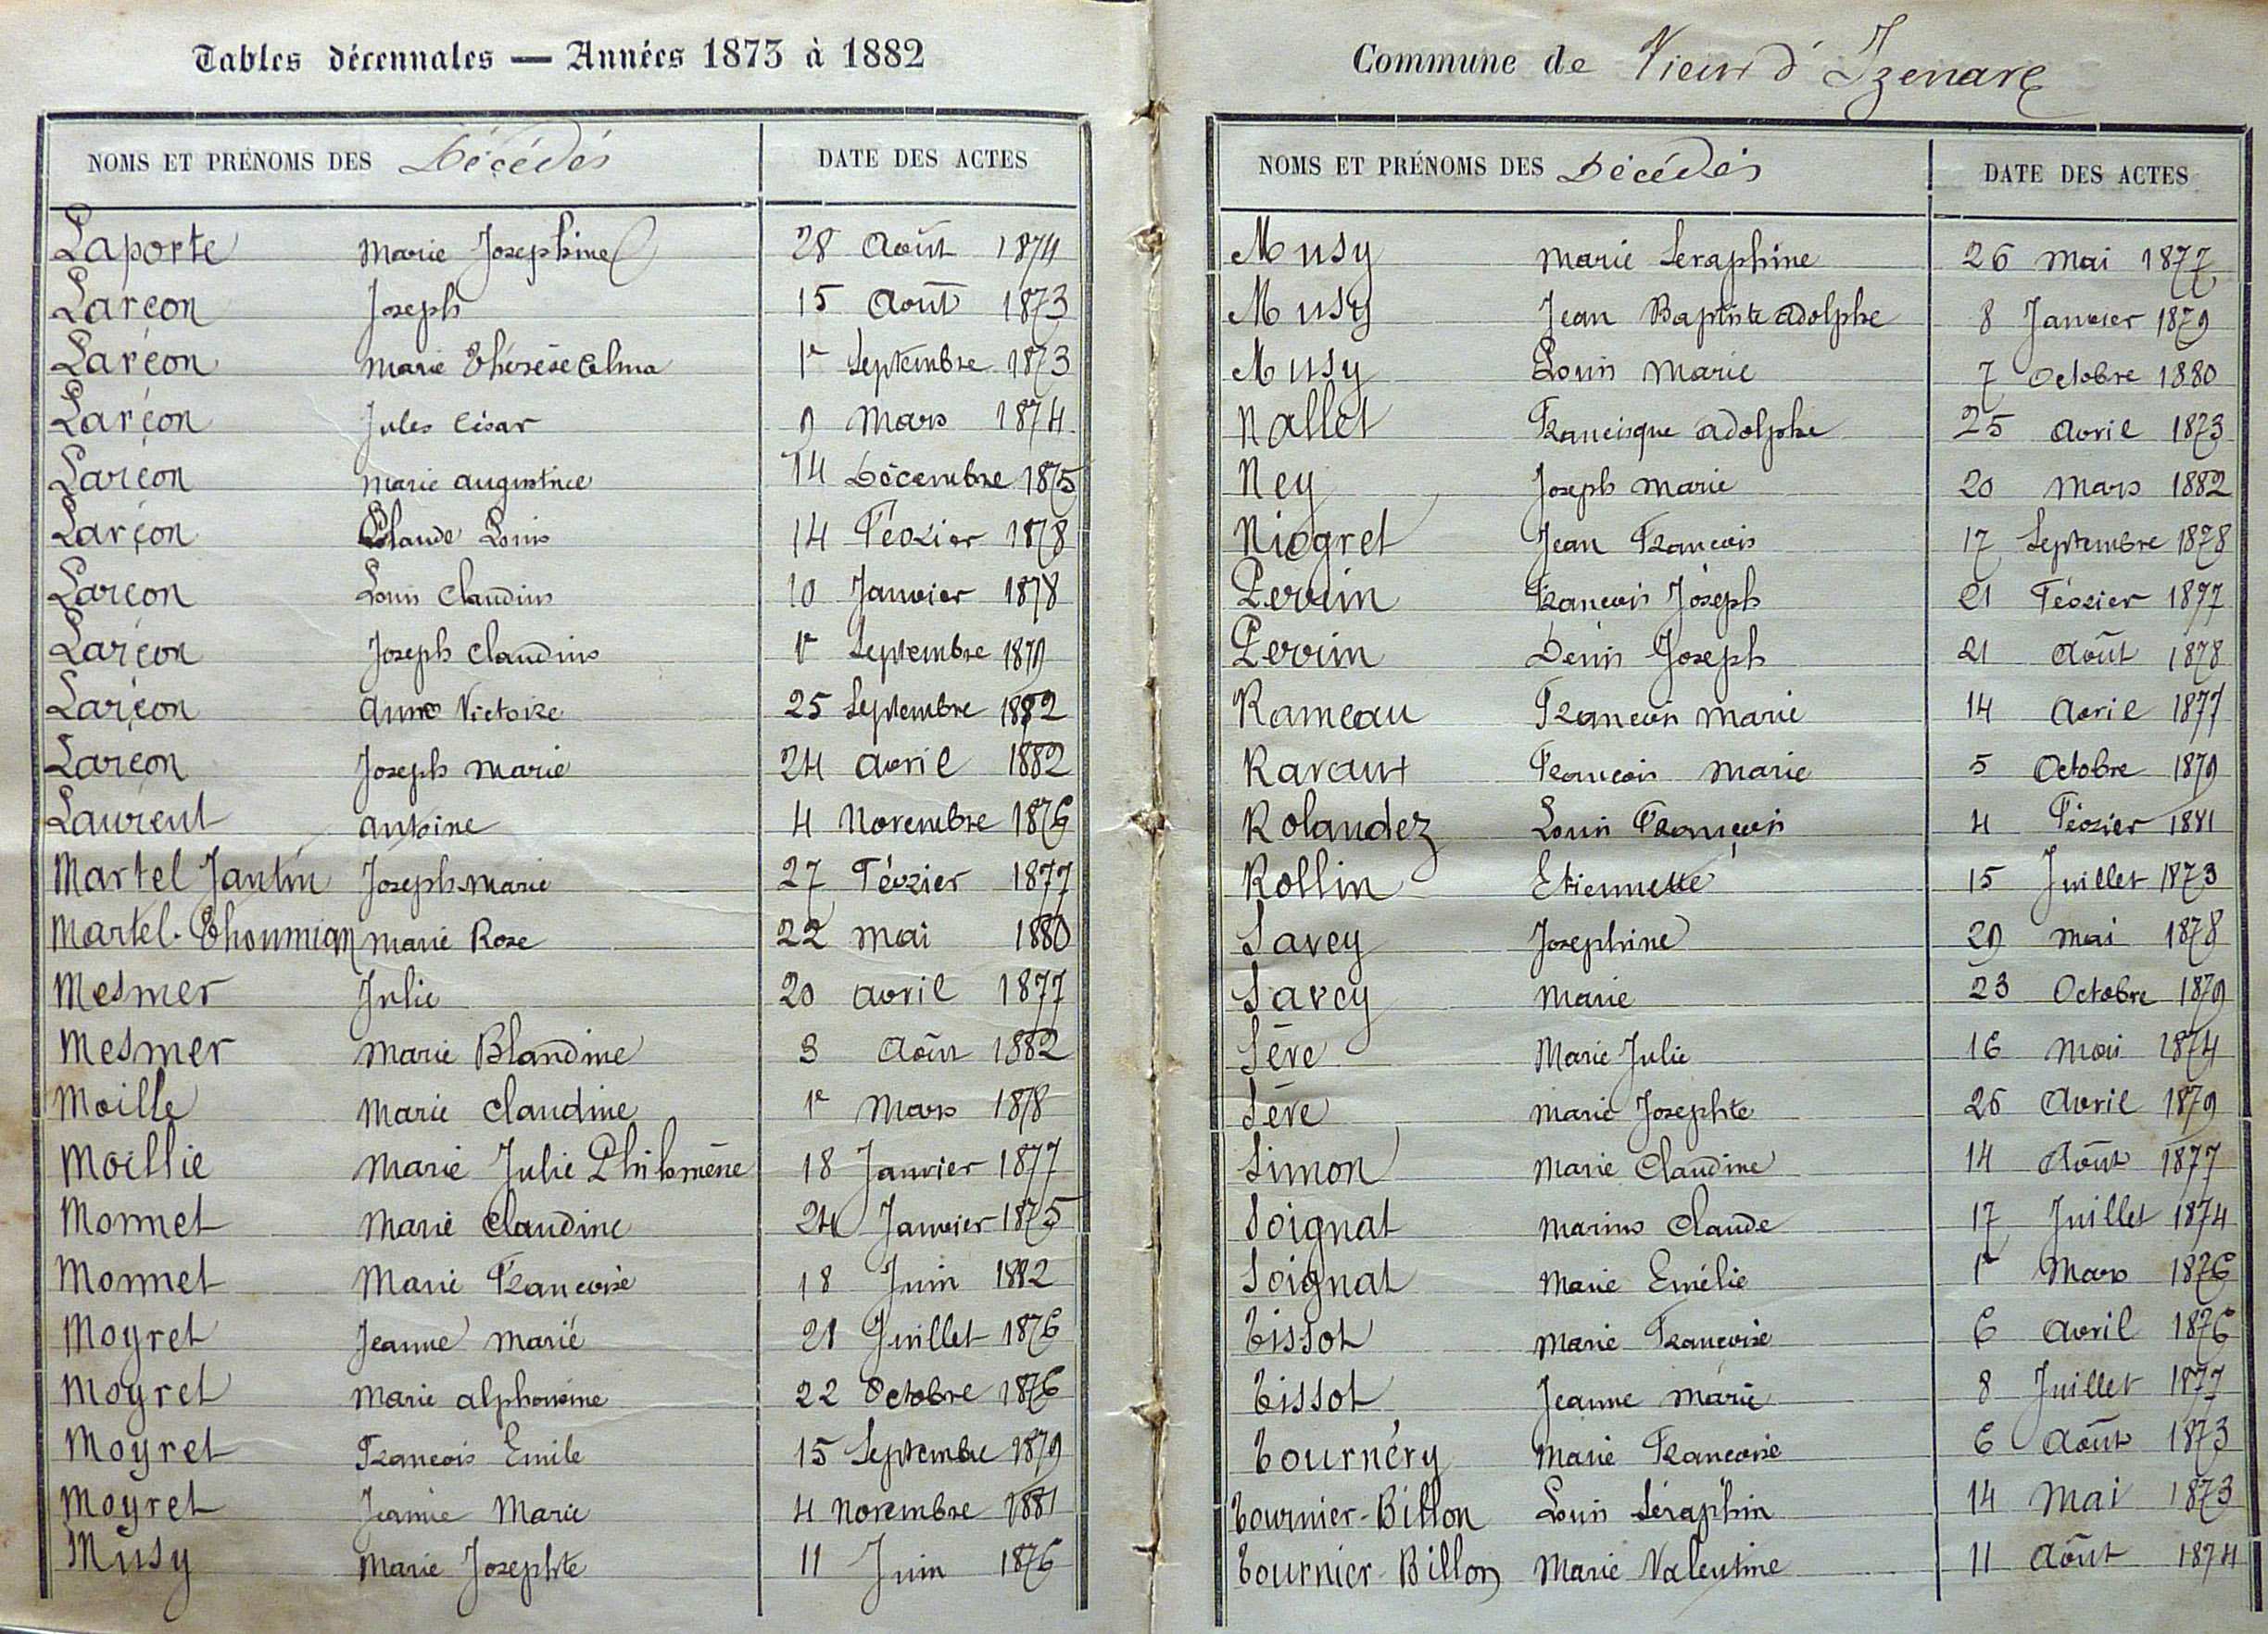 Tables décennales — Années 1873 à 1882
NOMS ET PRÉNOMS DES Décédés DATE DES ACTES
Laporte Marie Josephine 28 Août 1874
Larçon Joseph 15 Août 1873
Larçon Marie Thérèse Celma 1er Septembre 1873
Larçon Jules César 9 Mars 1874
Larçon Marie Augustine 14 Décembre 1875
Larçon Claude Louis 14 Février 1878
Larçon Louis Claudius 10 Janvier 1878
Larçon Joseph Claudius 1er Septembre 1879
Larçon Anne Victoire 25 Septembre 1882
Larçon Joseph Marie 24 Avril 1882
Laurent Antoine 4 Novembre 1876
Martel Jantin Joseph-Marie 27 Février 1877
Martel-Thoumian Marie Rose 22 Mai 1880
Mesmer Julie 20 Avril 1877
Mesmer Marie Blandine 3 Août 1882
Moille Marie Claudine 1er Mars 1878
Moillie Marie Julie Philomène 18 Janvier 1877
Monnet Marie Claudine 24 Janvier 1875
Monnet Marie Françoise 18 Juin 1882
Moyret Jeanne Marie 21 Juillet 1876
Moyret Marie Alphonsine 22 Octobre 1876
Moyret François Emile 15 Septembre 1879
Moyret Jeanne Marie 4 Novembre 1881
Musy Marie Josephte 11 Juin 1876
Commune de Vieu d'Izenave
NOMS ET PRÉNOMS DES Décédés DATE DES ACTES
Musy Marie Seraphine 26 Mai 1877
Musy Jean Baptiste Adolphe 8 Janvier 1879
Musy Louis Marie 7 Octobre 1880
Nallet Francisque Adolphe 25 Avril 1873
Ney Joseph Marie 20 Mars 1882
Niogret Jean François 17 Septembre 1878
Perrin François Joseph 21 Février 1877
Perrin Denis Joseph 21 Août 1878
Rameau François Marie 14 Avril 1877
Ravaux François Marie 5 Octobre 1879
Rolandez Louis François 4 Février 1881
Rollin Etiennette 15 Juillet 1873
Savey Josephine 29 Mai 1878
Savey Marie 23 Octobre 1879
Sève Marie Julie 16 Mai 1874
Sève Marie Josephte 26 Avril 1879
Simon Marie Claudine 14 Août 1877
Soignat Marius Claude 17 Juillet 1874
Soignat Marie Emélie 1er Mars 1876
Tissot Marie Françoise 6 Avril 1876
Tissot Jeanne Marie 8 Juillet 1877
Tournéry Marie Françoise 6 Août 1873
Tournier-Billon Louis Séraphin 14 Mai 1873
Tournier-Billon Marie Valentine 11 Août 1874